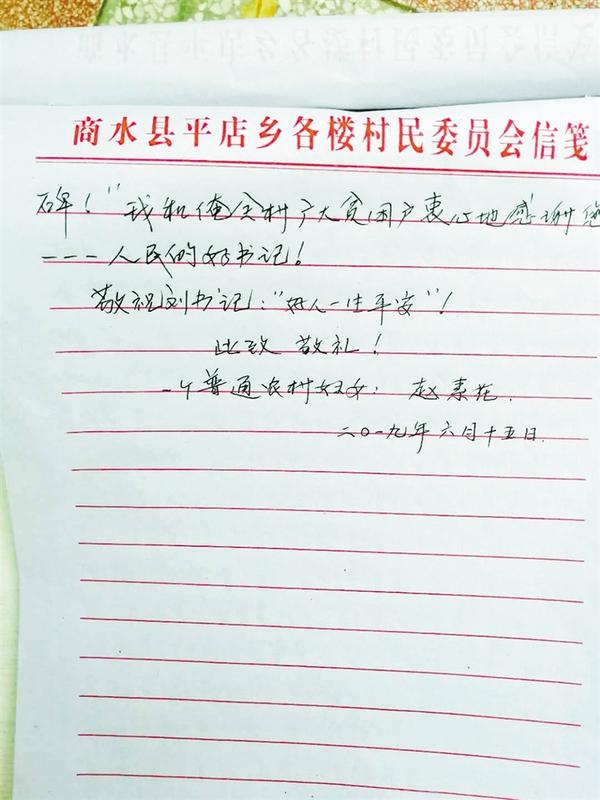 商水县平店乡各楼村民委员会信笺
碑！"我和俺全村广大贫困户衷心地感谢您
----人民的好书记！
敬祝刘书记："好人一生平安"！
此致 敬礼！
一个普通农村妇女： 赵素花.
二〇一九年六月十五日.